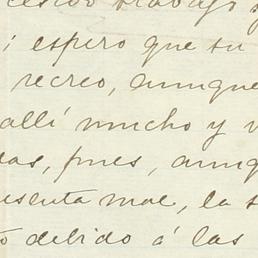 trabajo y
i espero que tu
recreo, aunque
allí mucho y v
das, pues, aunq
esenta mal, la s
o debido á las